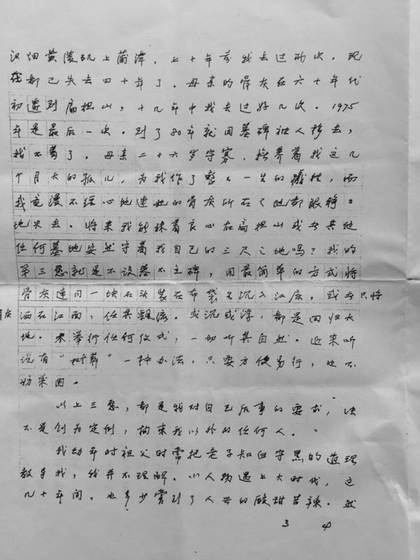 汉阳黄陵矶上蒲潭，七十年前我去过两次，现
在都已失去四十年了。母亲的骨灰在六十年代
初迁到扁担山，十几年中我去过好几次。1975
年是最后一次。到了80年就因墓碑被人移去，
找不着了。母亲二十六岁守寡，抚养着我这几
个月大的孤儿，为我作了整整一生的牺牲，而
我竟漫不经心地连她的骨灰所在之地都眼睁睁
地失去。将来我能昧着良心在扁担山或其他
任何墓地安然守着我自己的三尺之地吗？我的
第三愿就是不设墓不立碑，用最简单的方式将
骨灰连同一块石头装在布袋里沉入江底，或只将
洒在江面，任其飘流。或沉或浮，都是回归大
地。不举行任何仪式，一切听其自然。近来听
说有“树葬”一种办法，只要方便易行，也不
妨采用。
以上三愿，都是我对自己后事的要求，决
不是创为定例，拘束我以外的任何人。
我幼年时祖父时常把老子知白守黑的道理
教导我，我并不理解。小人物遇上大时代，这
几十年间，也多少尝到了人世的酸甜苦辣。然
3 4